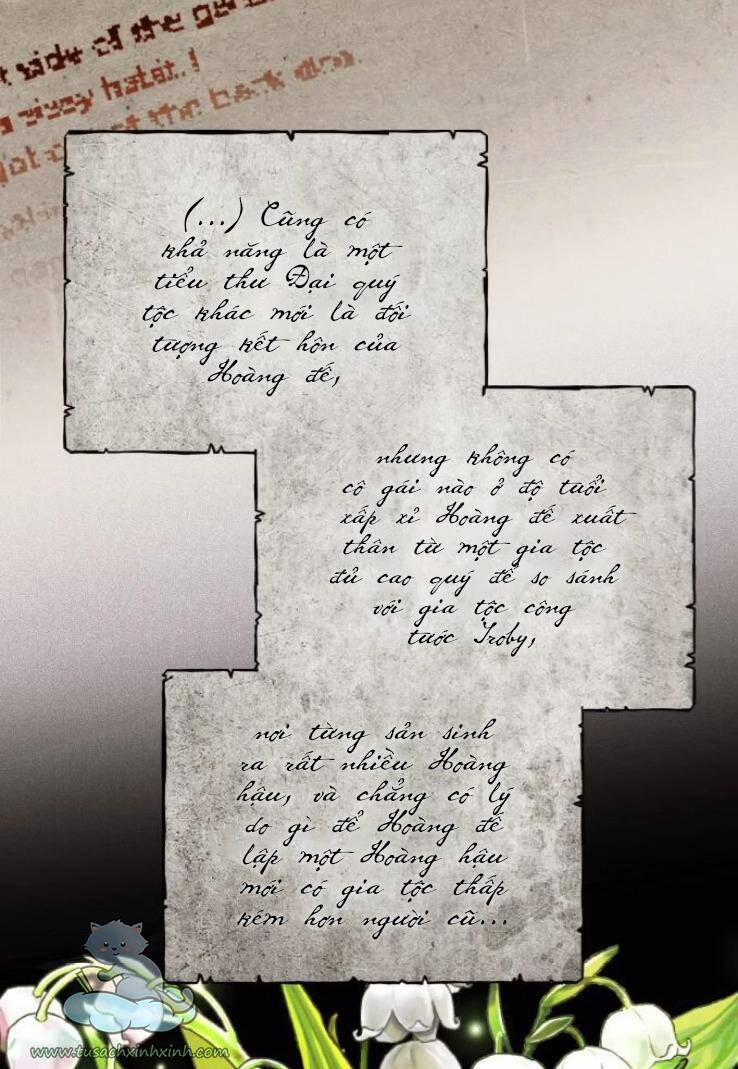 t side of the
of the back
(...) Cũng có
khả năng là một
tiểu thư Đại quý
tộc khác mới là đối
tượng kết hôn của
Hoàng đế,
nhưng không có
cô gái nào ở độ tuổi
xấp xỉ Hoàng đế xuất
thân từ một gia tộc
đủ cao quý để so sánh
với gia tộc công
tước Iroby,
nơi từng sản sinh
ra rất nhiều Hoàng
hậu, và chẳng có lý
do gì để Hoàng đế
lập một Hoàng hậu
mới có gia tộc thấp
kém hơn người cũ...
www.tusachxinhxinh.com